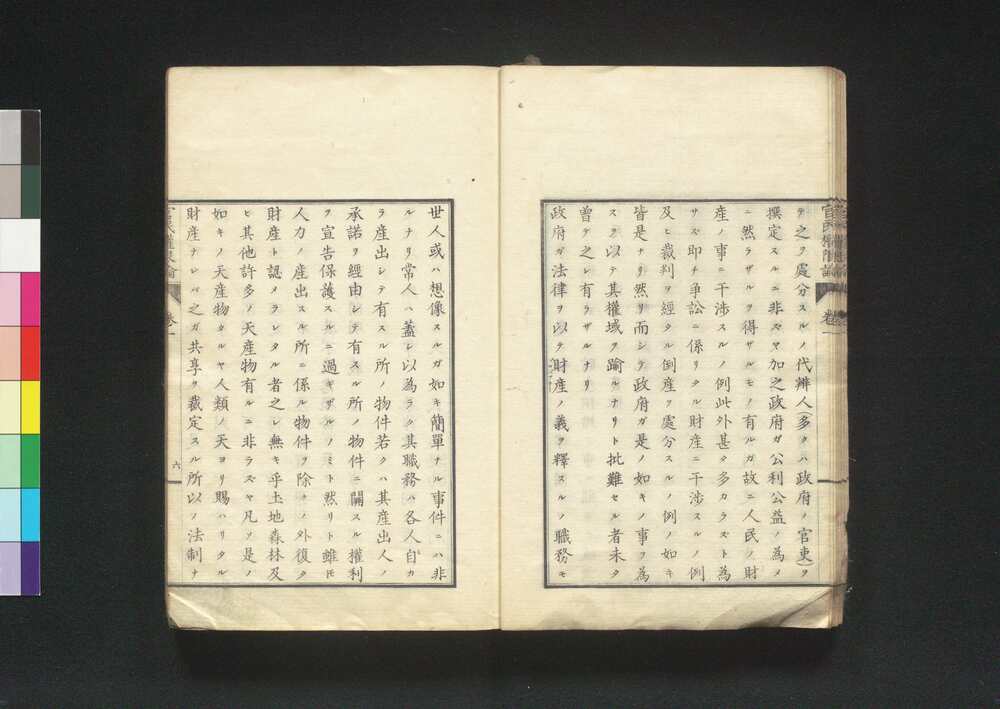 テ之ヲ處分スルノ代辨人(多クハ政府ノ官吏)ヲ
撰定スルニ非スヤ加之政府ガ公利公益ノ為メ
ニ然ラザルヲ得ザルモノ有ルガ故ニ人民ノ財
産ノ事ニ干渉スルノ例此外甚タ多カラスト為
サズ即チ爭訟ニ係リタル財産ニ干渉スルノ例
及ヒ裁判ヲ經タル倒産ヲ處分スルノ例ノ如キ
皆是ナリ然リ而シテ政府ガ是ノ如キノ事ヲ為
スヲ以テ其權域ヲ踰ルナリト批難セル者未タ
曾テ之レ有ラザルナリ
政府ガ法律ヲ以テ財産ノ義ヲ釋スルノ職務モ
世人或ハ想像スルガ如キ簡單ナル事件ニハ非
ルナリ常人ハ蓋シ以為ラク其職務ハ各人自カ
ラ産出シテ有スル所ノ物件若クハ其産出人ノ
承諾ヲ經由シテ有スル所ノ物件ニ關スル權利
ヲ宣告保護スルニ過ギザルノミト然リト雖モ
人力ノ産出スル所ニ係ル物件ヲ除クノ外復タ
財産ト認メラレタル者之レ無キ乎土地森林及
ヒ其他許多ノ天産物有ルニ非ラズヤ凡ソ是ノ
如キノ天産物タルヤ人類ノ天ヨリ賜ハリタル
財産ナレバ之ガ共享ヲ裁定スル所以ノ法制ナ
官民權限論
卷一
六